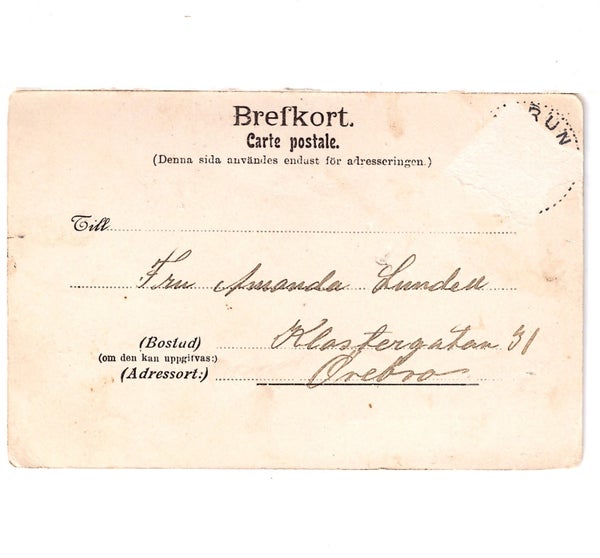 Brefkort.
RUN
Carte postale.
(Denna sida användes endast för adresseringen.)
Till
Fru Amanda Lundell
(Bostad) Klostergatan 31
(om den kan uppgifvas:)
(Adressort:) Örebro